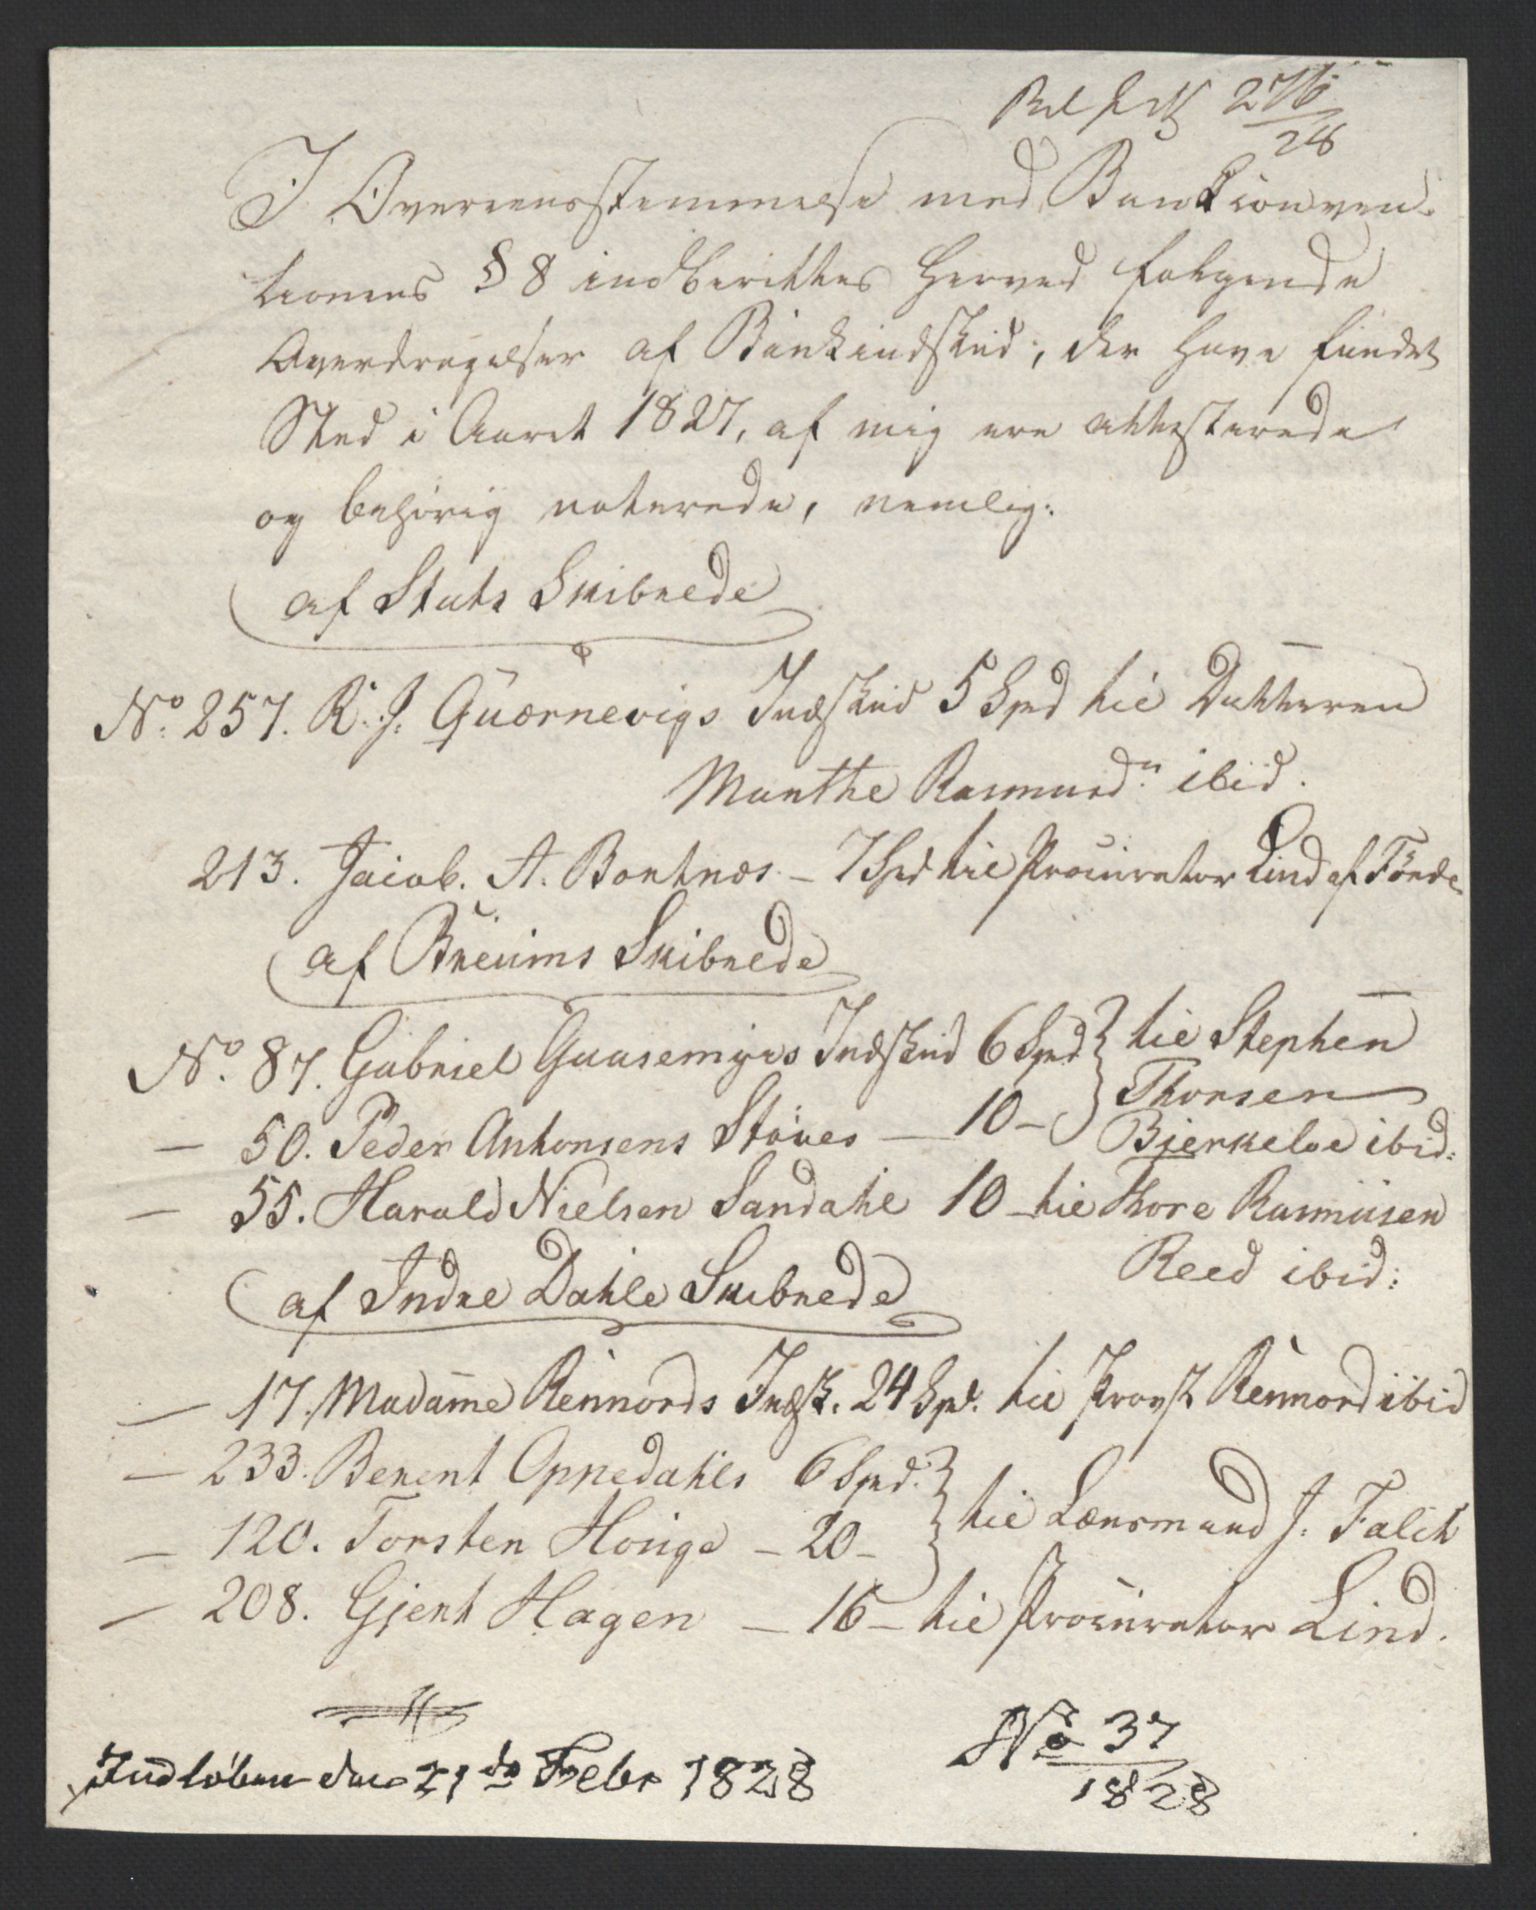 276
28
I Overeensstemmelse med Bankconven-
tionens § 8 indberettes herved følgende
Overdragelser af Bankindskud, der have fundet
Sted i Aaret 1827, af mig ere attesterede
og behørig noterede, nemlig:
af Stats Skibrede
No. 257. R. J. Quærnevigs Indskud 5 Spd til Datteren
Manthe Rasmusd.n ibid.
213. Jacob. A. Bortnæs - 7 Spd til Procurator Lind af Förde
af Breüms Skibrede
No. 87. Gabriel Gaasemyrs Indskud 6 Spd } til Stephen
Thorsen
— 50. Peder Anthonsens Støves — 10 - Bjerkeloe ibid:
— 55. Harald Nielsen Sandahl 10 - til Thore Rasmüsen
Reed ibid:
af Indre Dahls Skibrede
— 17. Madame Rennords Indsk. 24 Spd. til Provst Rennord ibid
— 233. Berent Oppedahls 6 Spd. } til Lænsmand J. Falch
— 120. Torsten Horige - 20 -
— 208. Gjert Hagen — 16 - til Procurator Lind.
Indløben den 21de Febr 1828
No 37
1828